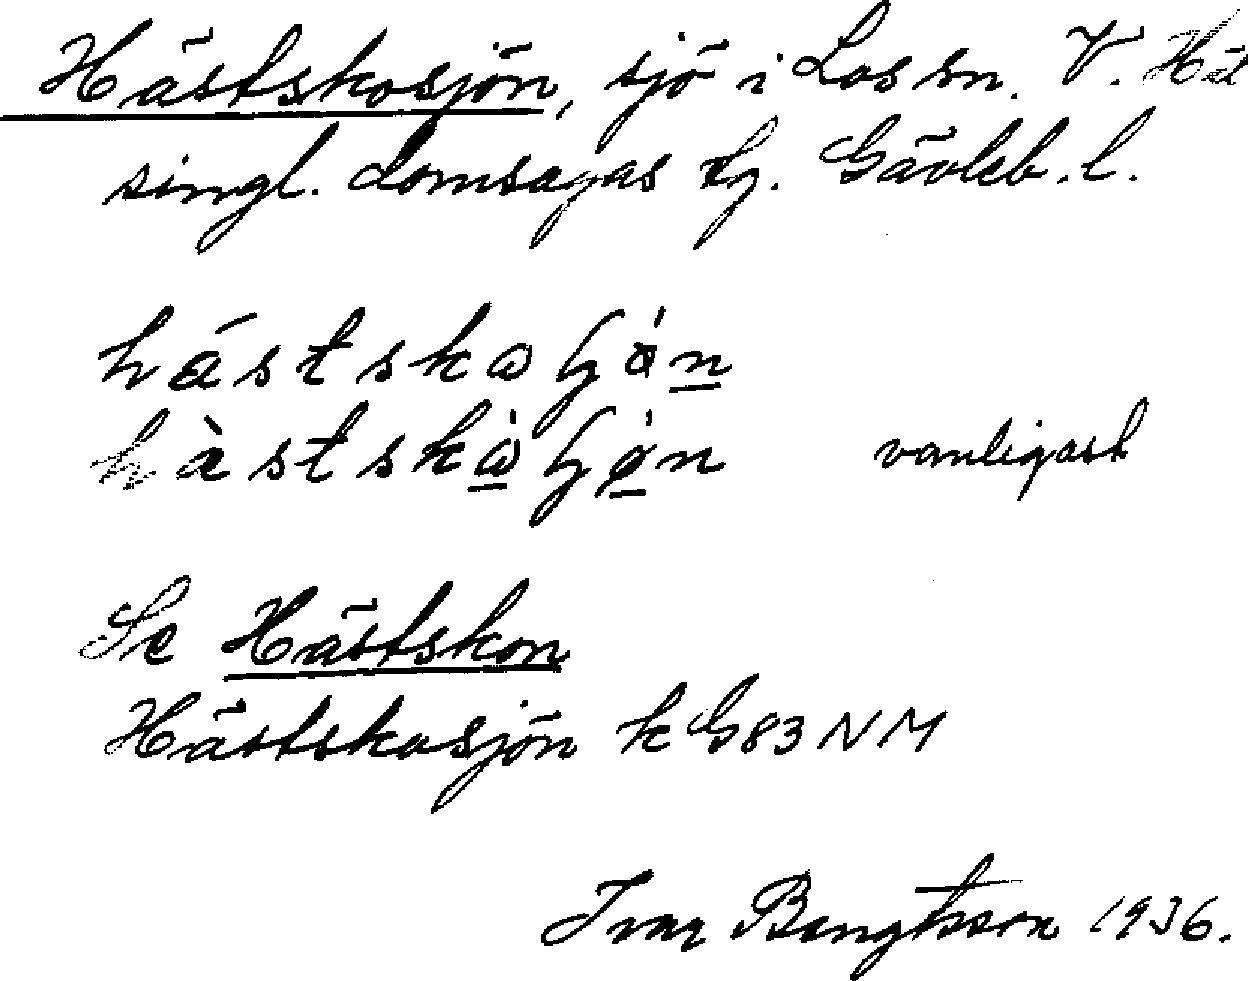 Hästskosjön, sjö i Los sn. V. Häl
singl. domsagas tg. Gävleb. l.
vanligast
Se Hästskon
Hästskosjön k G83 NM
Ivar Bengtsson 1936.